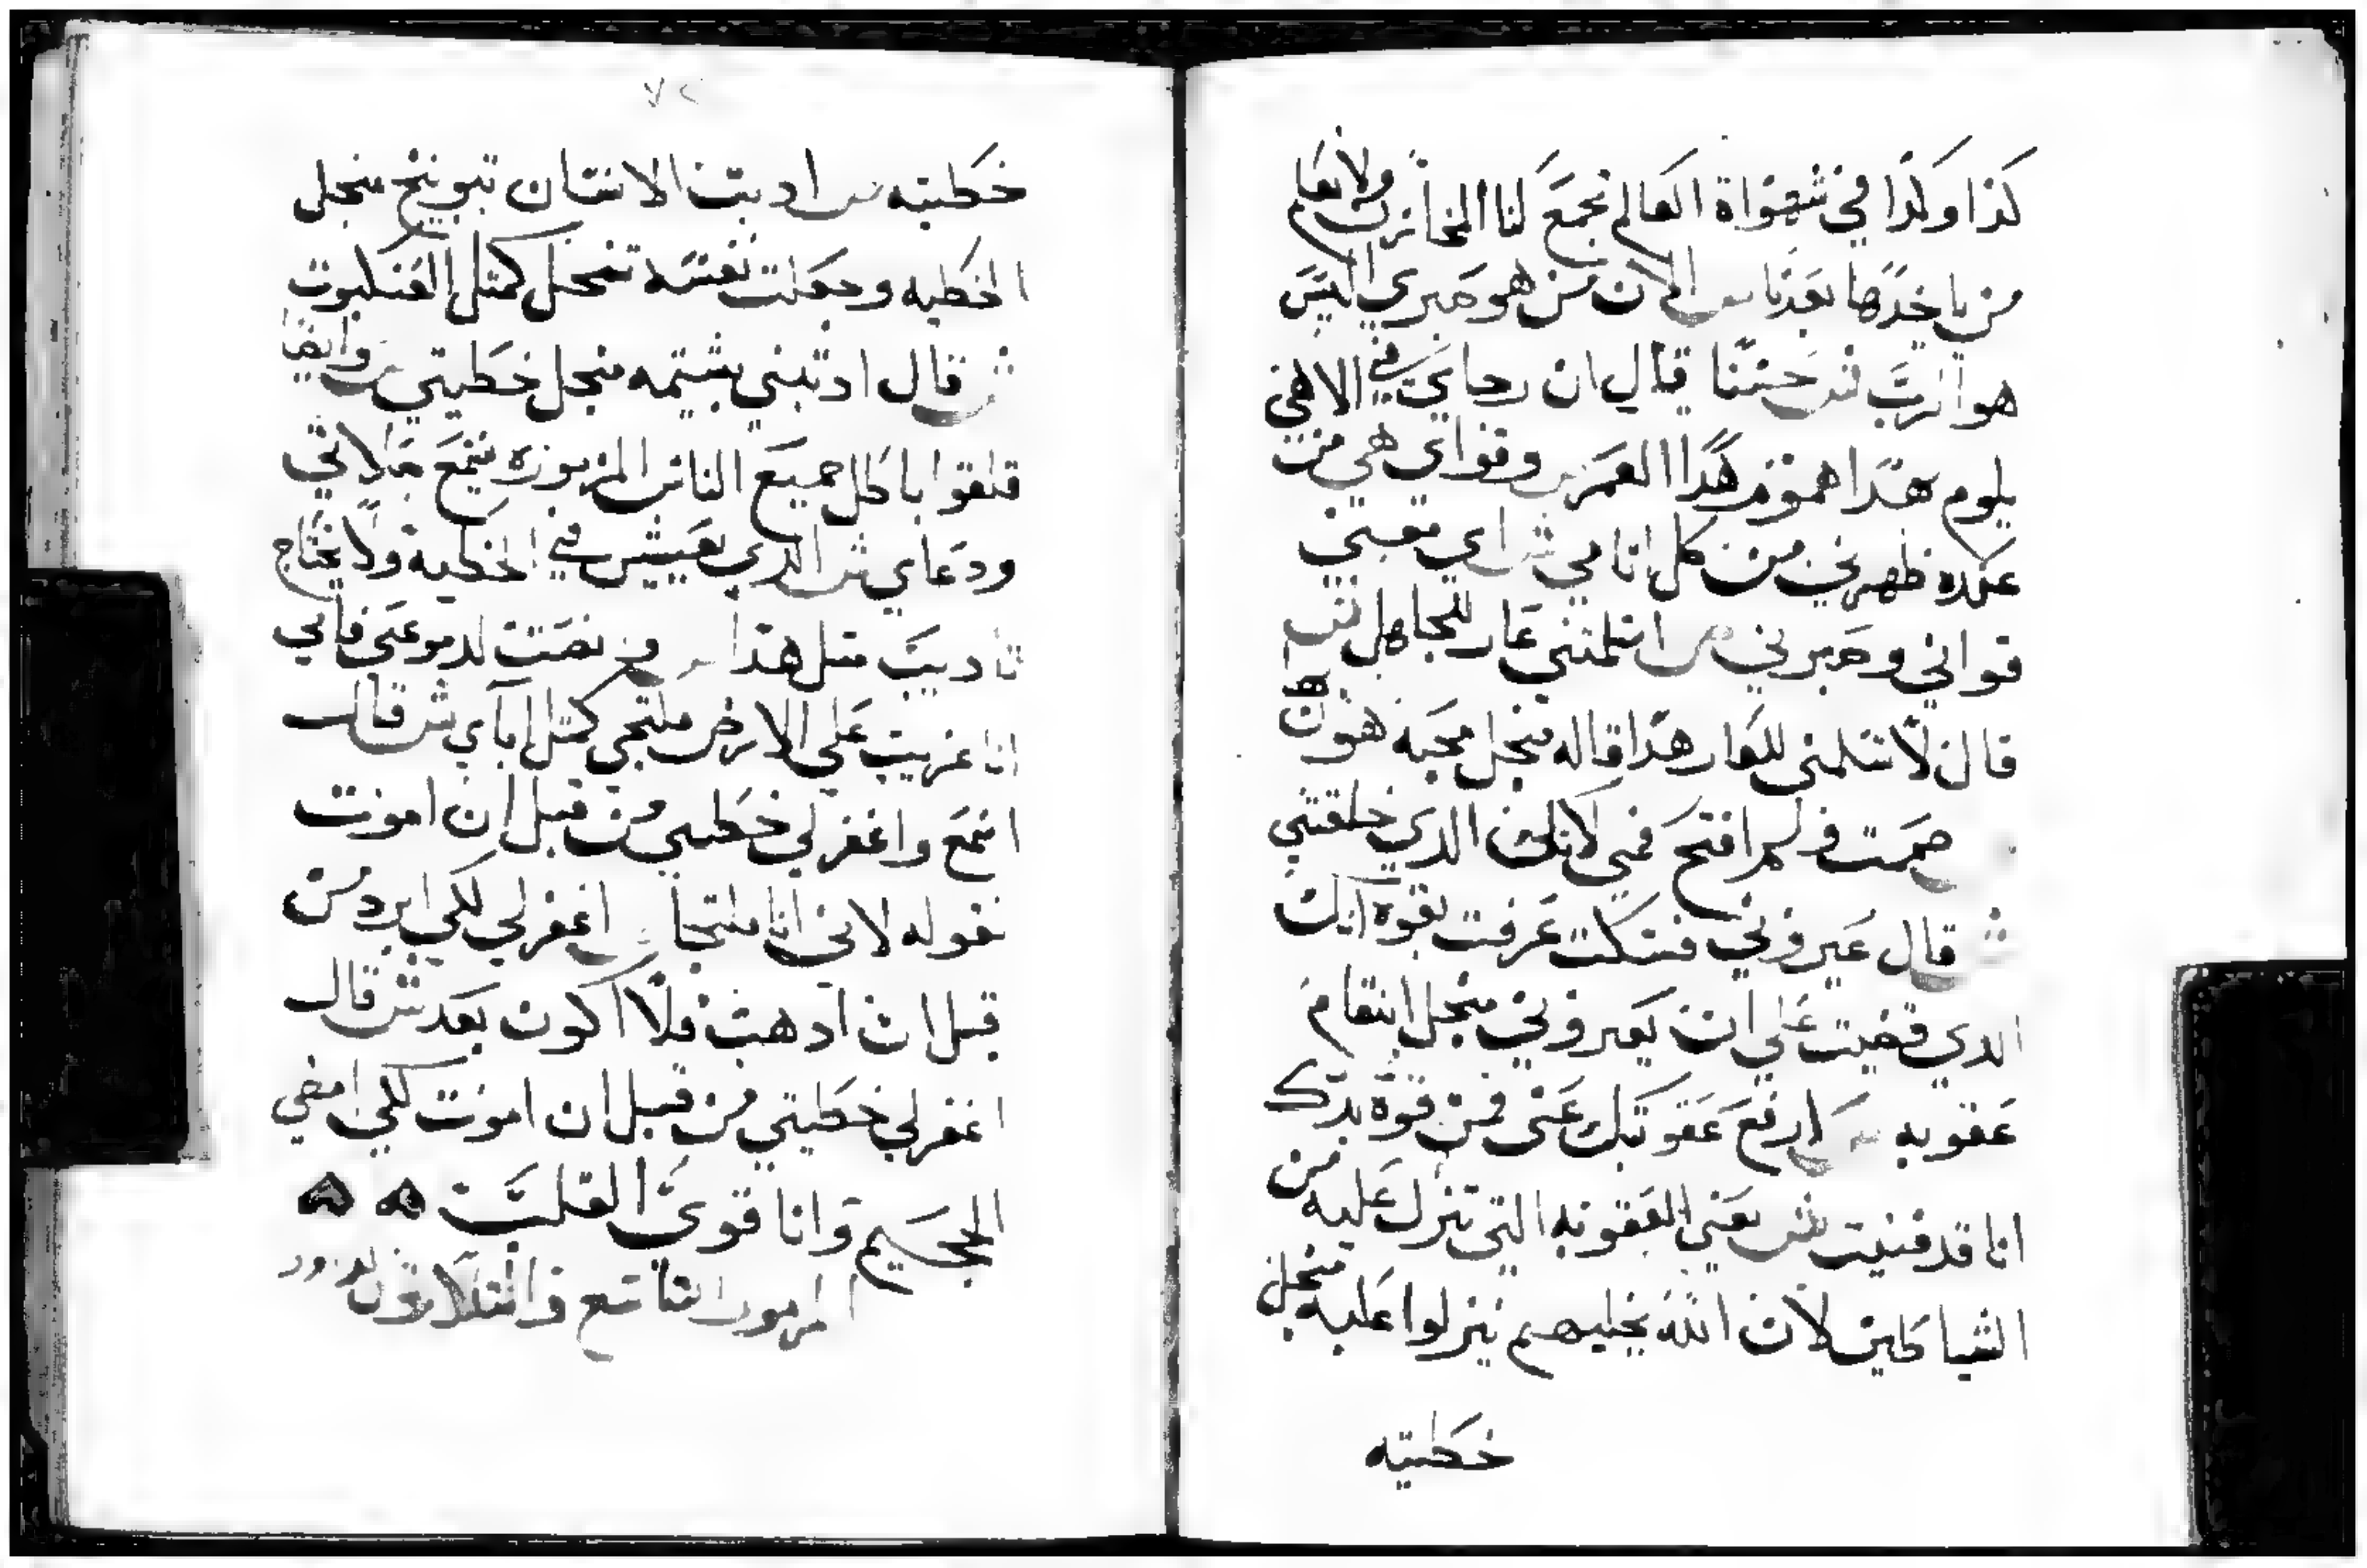 كذا وكذا في شهواة العالم نجمع لنا الخاين ولا نعلم
من ياخدها بعدنا س الان من هو صبري اليس
هو الرب ش حسنا قال ان رجاي في الاهي
يلوم هذا هموم هذا العمر وقواي هي من
عنده طهرني من كل اتامي ش اي تعبني
قواني وصبرني س اسلمتني عار للجاهل ش
قال لا تسلمني للعار هذا قاله منجل محبة هون
صمت ولم افتح فمي لانك الدي خلقتني
ش قال عيروني فسكت عرفت بقوة انك
الدي قضيت علي ان يعيروني منجل انتقام
عقوبه س ارفع عقوبتك عني فمن قوة يدك
انا قد فنيت ش يعني العقوبه التي تنزل عليه من
الشياطين لان الله يخليهم ينزلوا عليه منجل
خطيته
٧٢
خطيته س ادبت الانسان تبوبيخ منجل
الخطيه وجعلت نفسه تنحل كمثل العنكبوت
ش قال ادبتني بشتيمه منجل خطيتي س وايضا
قلقوا باطل جميع الناس المزبوره س سمع صلاتي
ودعاي ش الدي يعيش في الخطية ولا يحتاج
تاديب متل هذا س ونصت لدموعي فاني
انا غريب علي الارض ملتجي كمثل اباي ش قال
اسمع واغفر لي خطيتي من قبل ان اموت
بقوله لاني انا ملتجا س اغفر لي لكي ابرد من
قبل ان ادهب فلا اكون بعد ش قال
اغفر لي خطيتي من قبل ان اموت لكي امضي
الجحيم وانا قوي القلب ۞ ۞
المزمور التاسع والتلاتون لداوود